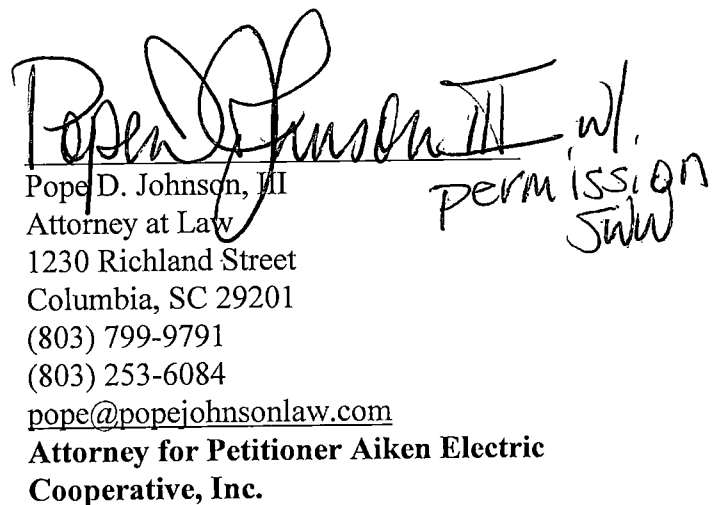 Pope D Johnson III w/.
permission
SWW
Pope D. Johnson, III
Attorney at Law
1230 Richland Street
Columbia, SC 29201
(803) 799-9791
(803) 253-6084
pope@popejohnsonlaw.com
Attorney for Petitioner Aiken Electric
Cooperative, Inc.